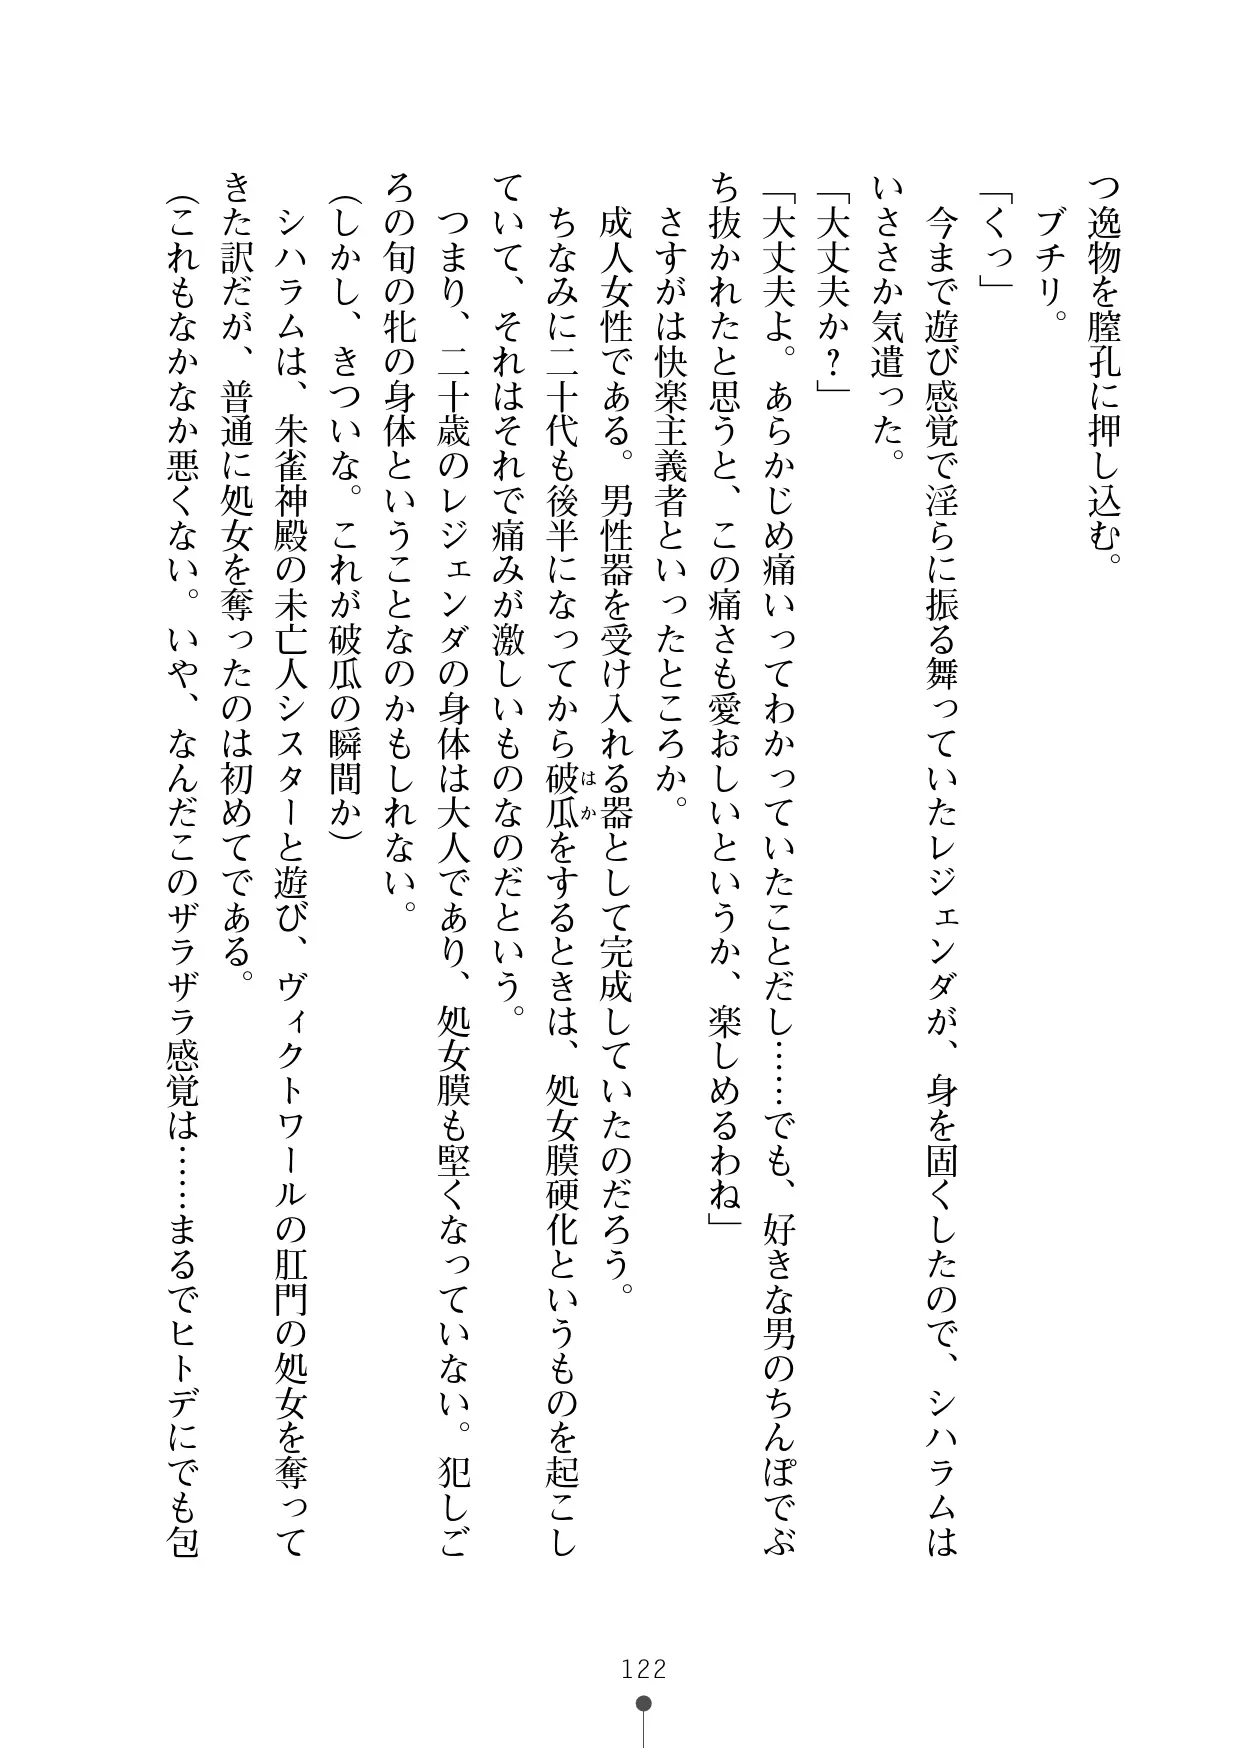 つ逸物を膣孔に押し込む。
ブチリ。
「くっ」
今まで遊び感覚で淫らに振る舞っていたレジェンダが、身を固くしたので、シハラムは
いささか気遣った。
「大丈夫か?」
「大丈夫よ。あらかじめ痛いってわかっていたことだし……でも、好きな男のちんぽでぶ
ち抜かれたと思うと、この痛さも愛おしいというか、楽しめるわね」
さすがは快楽主義者といったところか。
成人女性である。男性器を受け入れる器として完成していたのだろう。
ちなみに二十代も後半になってから破瓜をするときは、処女膜硬化というものを起こし
はか
ていて、それはそれで痛みが激しいものなのだという。
つまり、二十歳のレジェンダの身体は大人であり、処女膜も堅くなっていない。犯しご
ろの旬の牝の身体ということなのかもしれない。
(しかし、きついな。これが破瓜の瞬間か)
シハラムは、朱雀神殿の未亡人シスターと遊び、ヴィクトワールの肛門の処女を奪って
きた訳だが、普通に処女を奪ったのは初めてである。
(これもなかなか悪くない。いや、なんだこのザラザラ感覚は……まるでヒトデにでも包
122